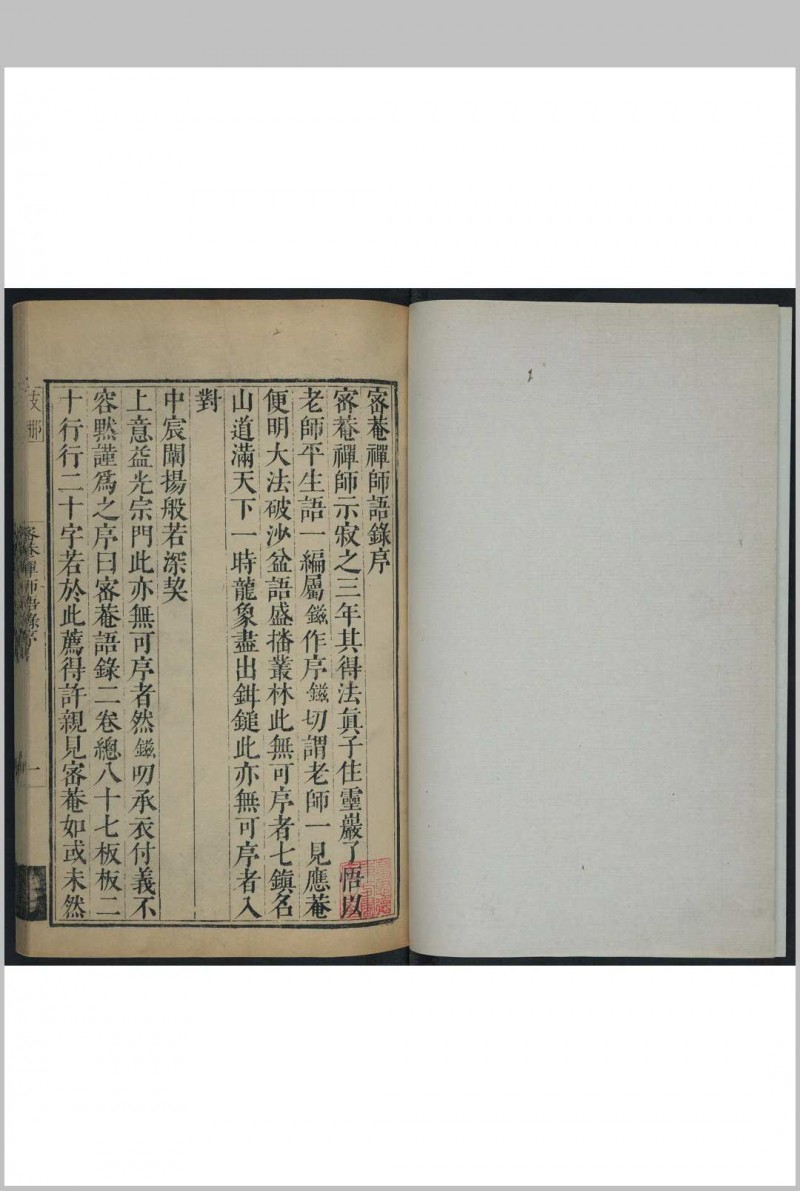 密菴禪師語錄序
密菴禪師示寂之三年其得法真子住靈巖了悟以
老師平生語一編屬鎡作序鎡切謂老師一見應菴
便明大法破沙盆語盛播叢林此無可序者七鎮名
山道滿天下一時龍象盡出鉗鎚此亦無可序者入
對
中宸闡揚般若深契
上意益光宗門此亦無可序者然鎡叨承衣付義不
容默謹為之序曰密菴語錄二卷總八十七板板二
十行行二十字若於此薦得許親見密菴如或未然
支那
密菴禪師語錄序
一